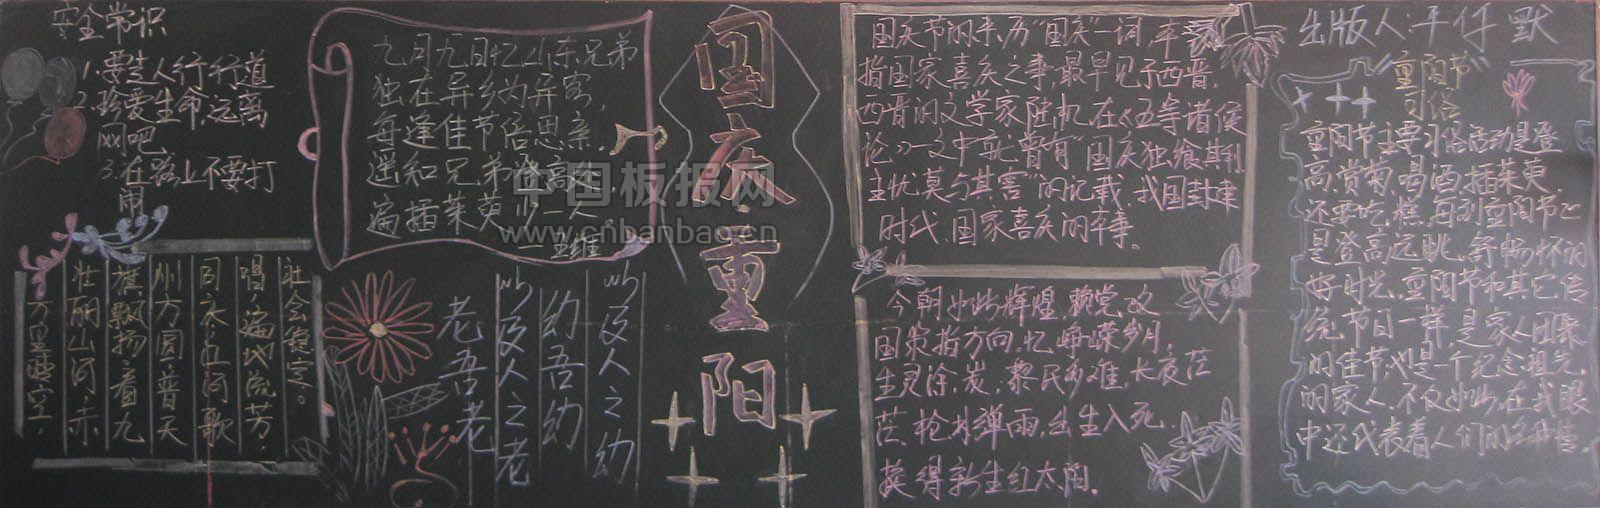 安全常识
1.要走人行行道
2.珍爱生命,远离
网吧
3.在路上不要打
闹
九月九日忆山东兄弟
独在异乡为异客,
每逢佳节倍思亲,
遥知兄弟登高处,
遍插茱萸少一人。
王维
中国板报网
www.cnbanbao.cn
国庆重阳
社会稳定。
唱,遍地流芳,
同庆,五河歌
州方圆,普天
旗飘扬,看九
壮丽山河,赤
万里晴空,
老吾老
以及人之老
幼吾幼
以及人之幼
国庆节的来历"国庆"一词,本
指国家喜庆之事,最早见于西晋。
西晋的文学家陆机,在《五等诸侯
论》一文中就曾有"国庆独飨其利,
主忧莫与其害"的记载,我国封建
时代、国家喜庆的卒事。
今朝如此辉煌,赖党政
国策指方向,忆峥嵘岁月,
生灵涂炭,黎民多难,长夜茫
茫,枪林弹雨,出生入死,
换得新生红太阳。
出版人:平仔 默
"重阳节"
习俗
重阳节主要习俗活动是登
高,赏菊,喝酒,插茱萸,
还要吃糕,每到重阳节也
是登高远眺、舒畅怀的
好时光。重阳节和其它传
统节日一样,是家人团聚
的佳节,也是一个纪念祖先
的家人,不仅如此,在我眼
中还代表着人们的